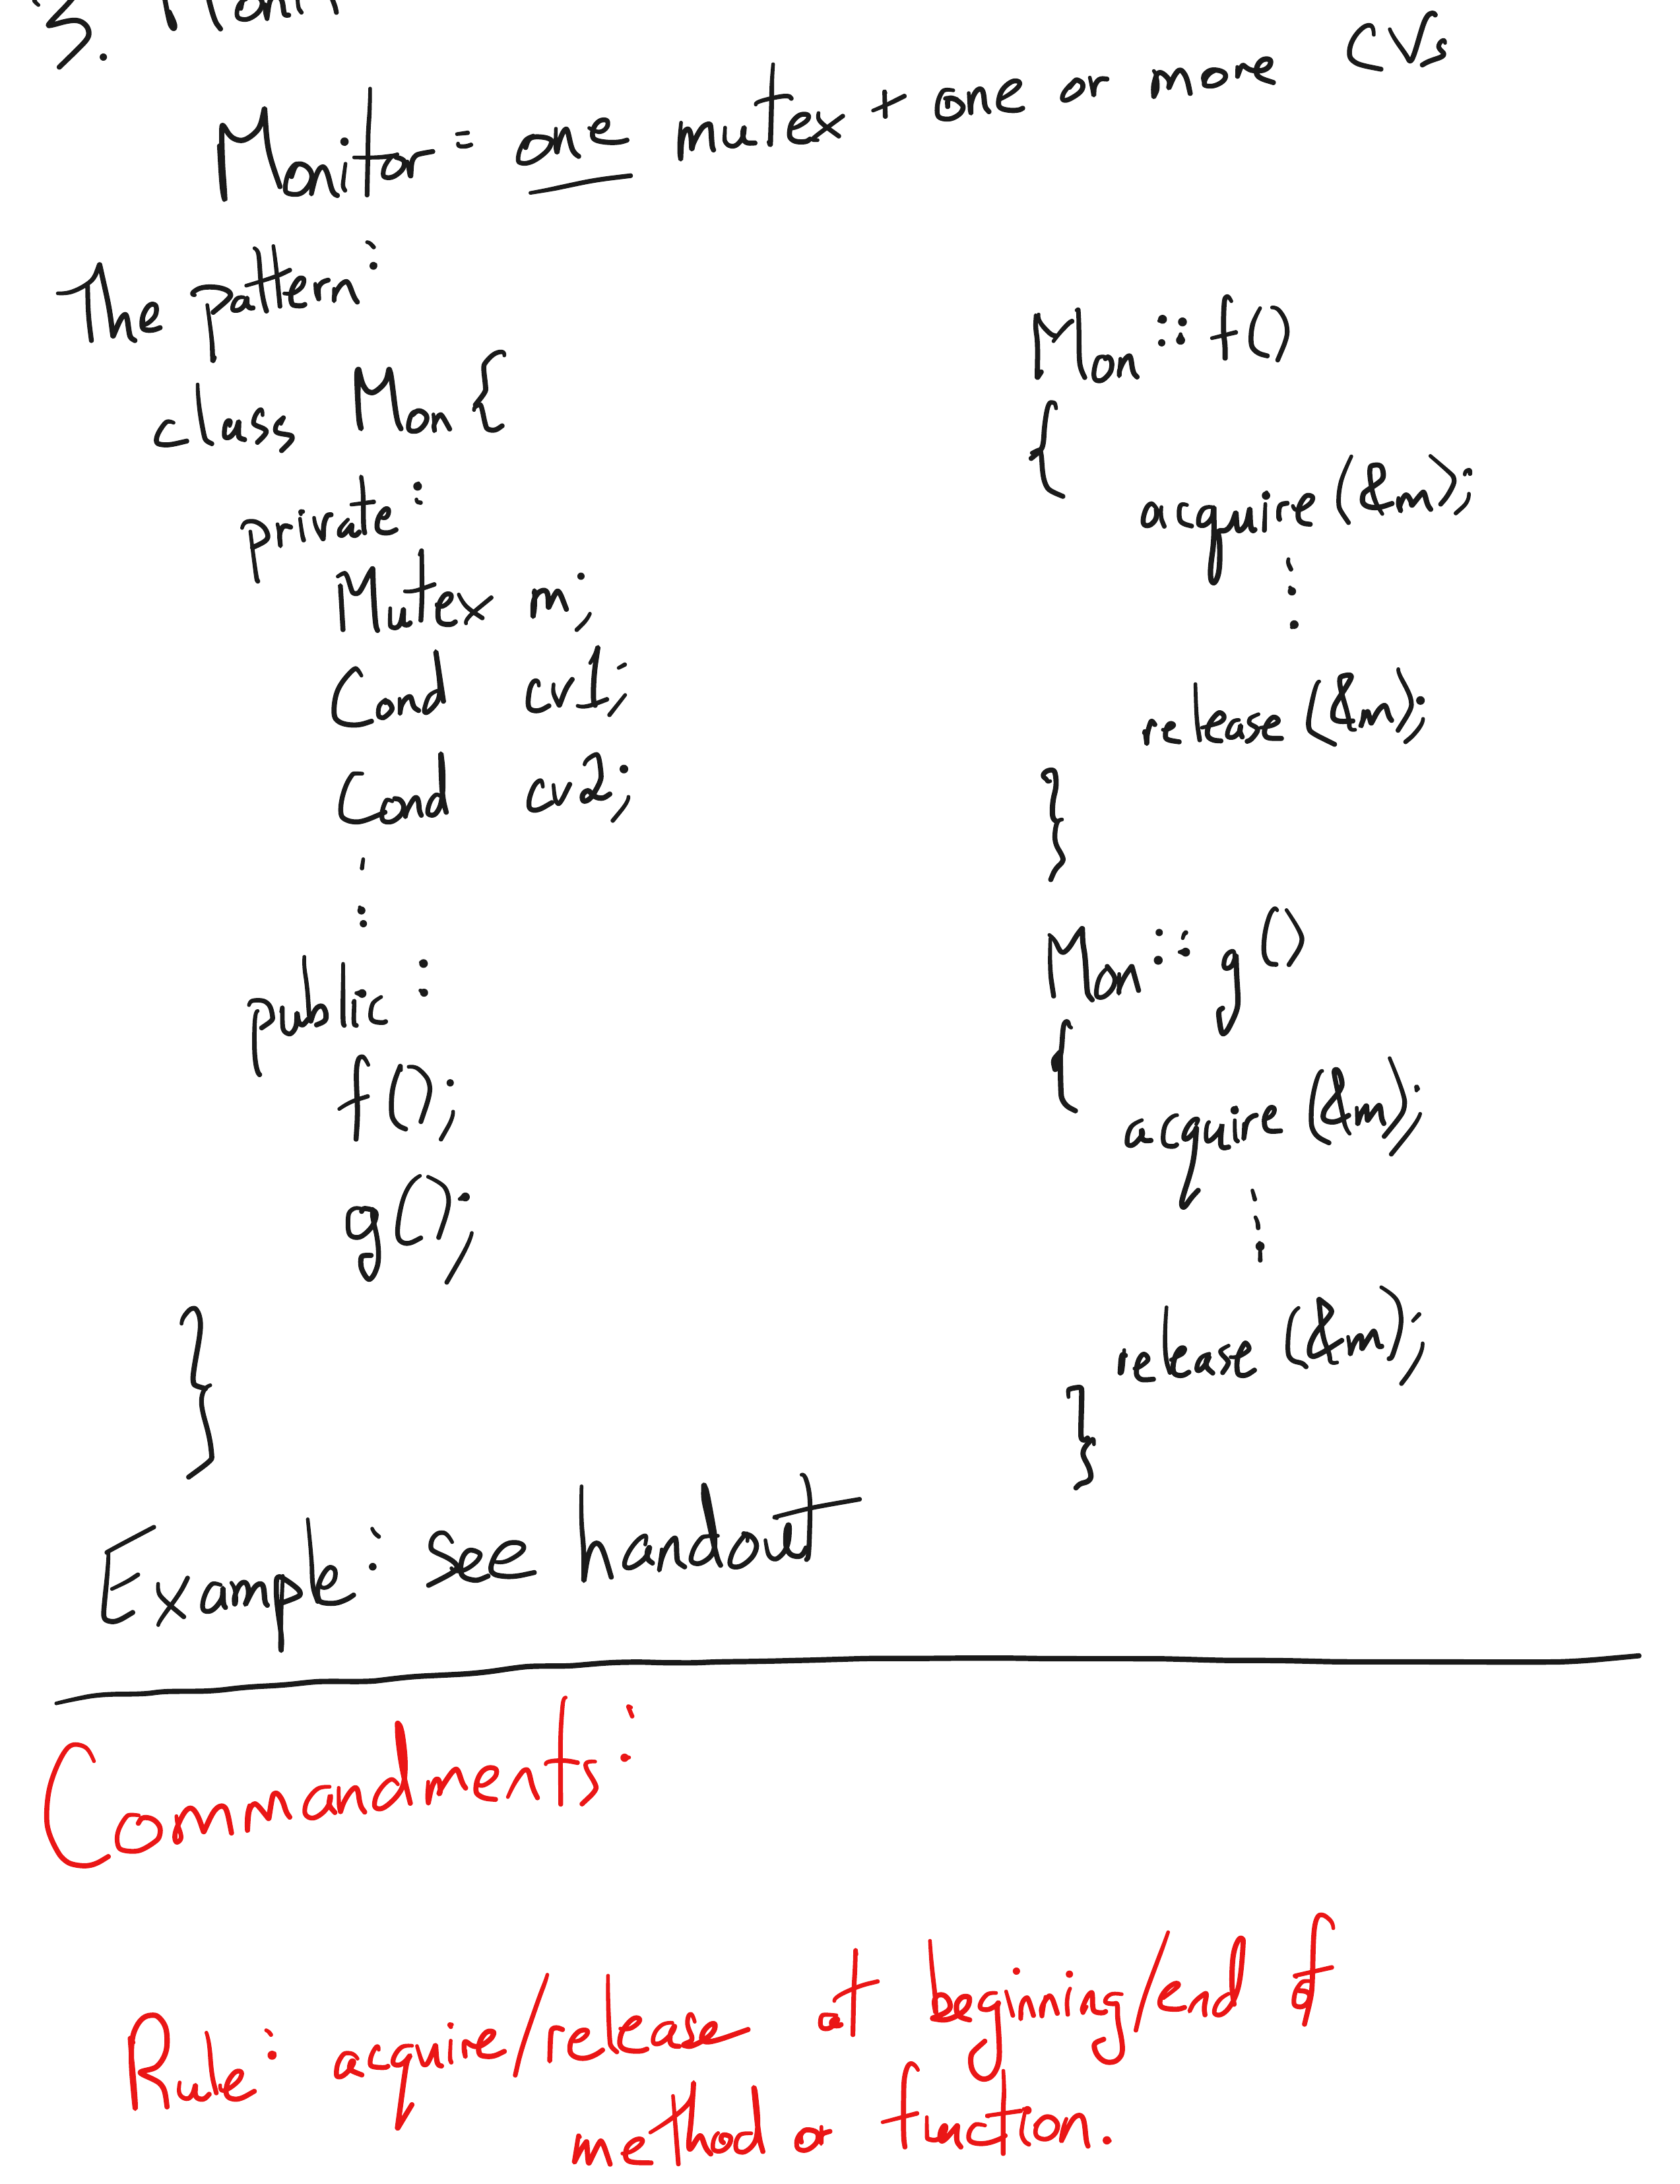 3. Moni
Monitor = one mutex + one or more CVs
The pattern:
class Mon {
private:
Mutex m;
Cond cv1;
Cond cv2;
public:
f();
g();
}
Mon::f()
{
acquire(&m);
release(&m);
}
Mon::g()
{
acquire(&m);
release(&m);
}
Example: see handout
Commandments:
Rule: acquire/release at beginning/end of
method or function.